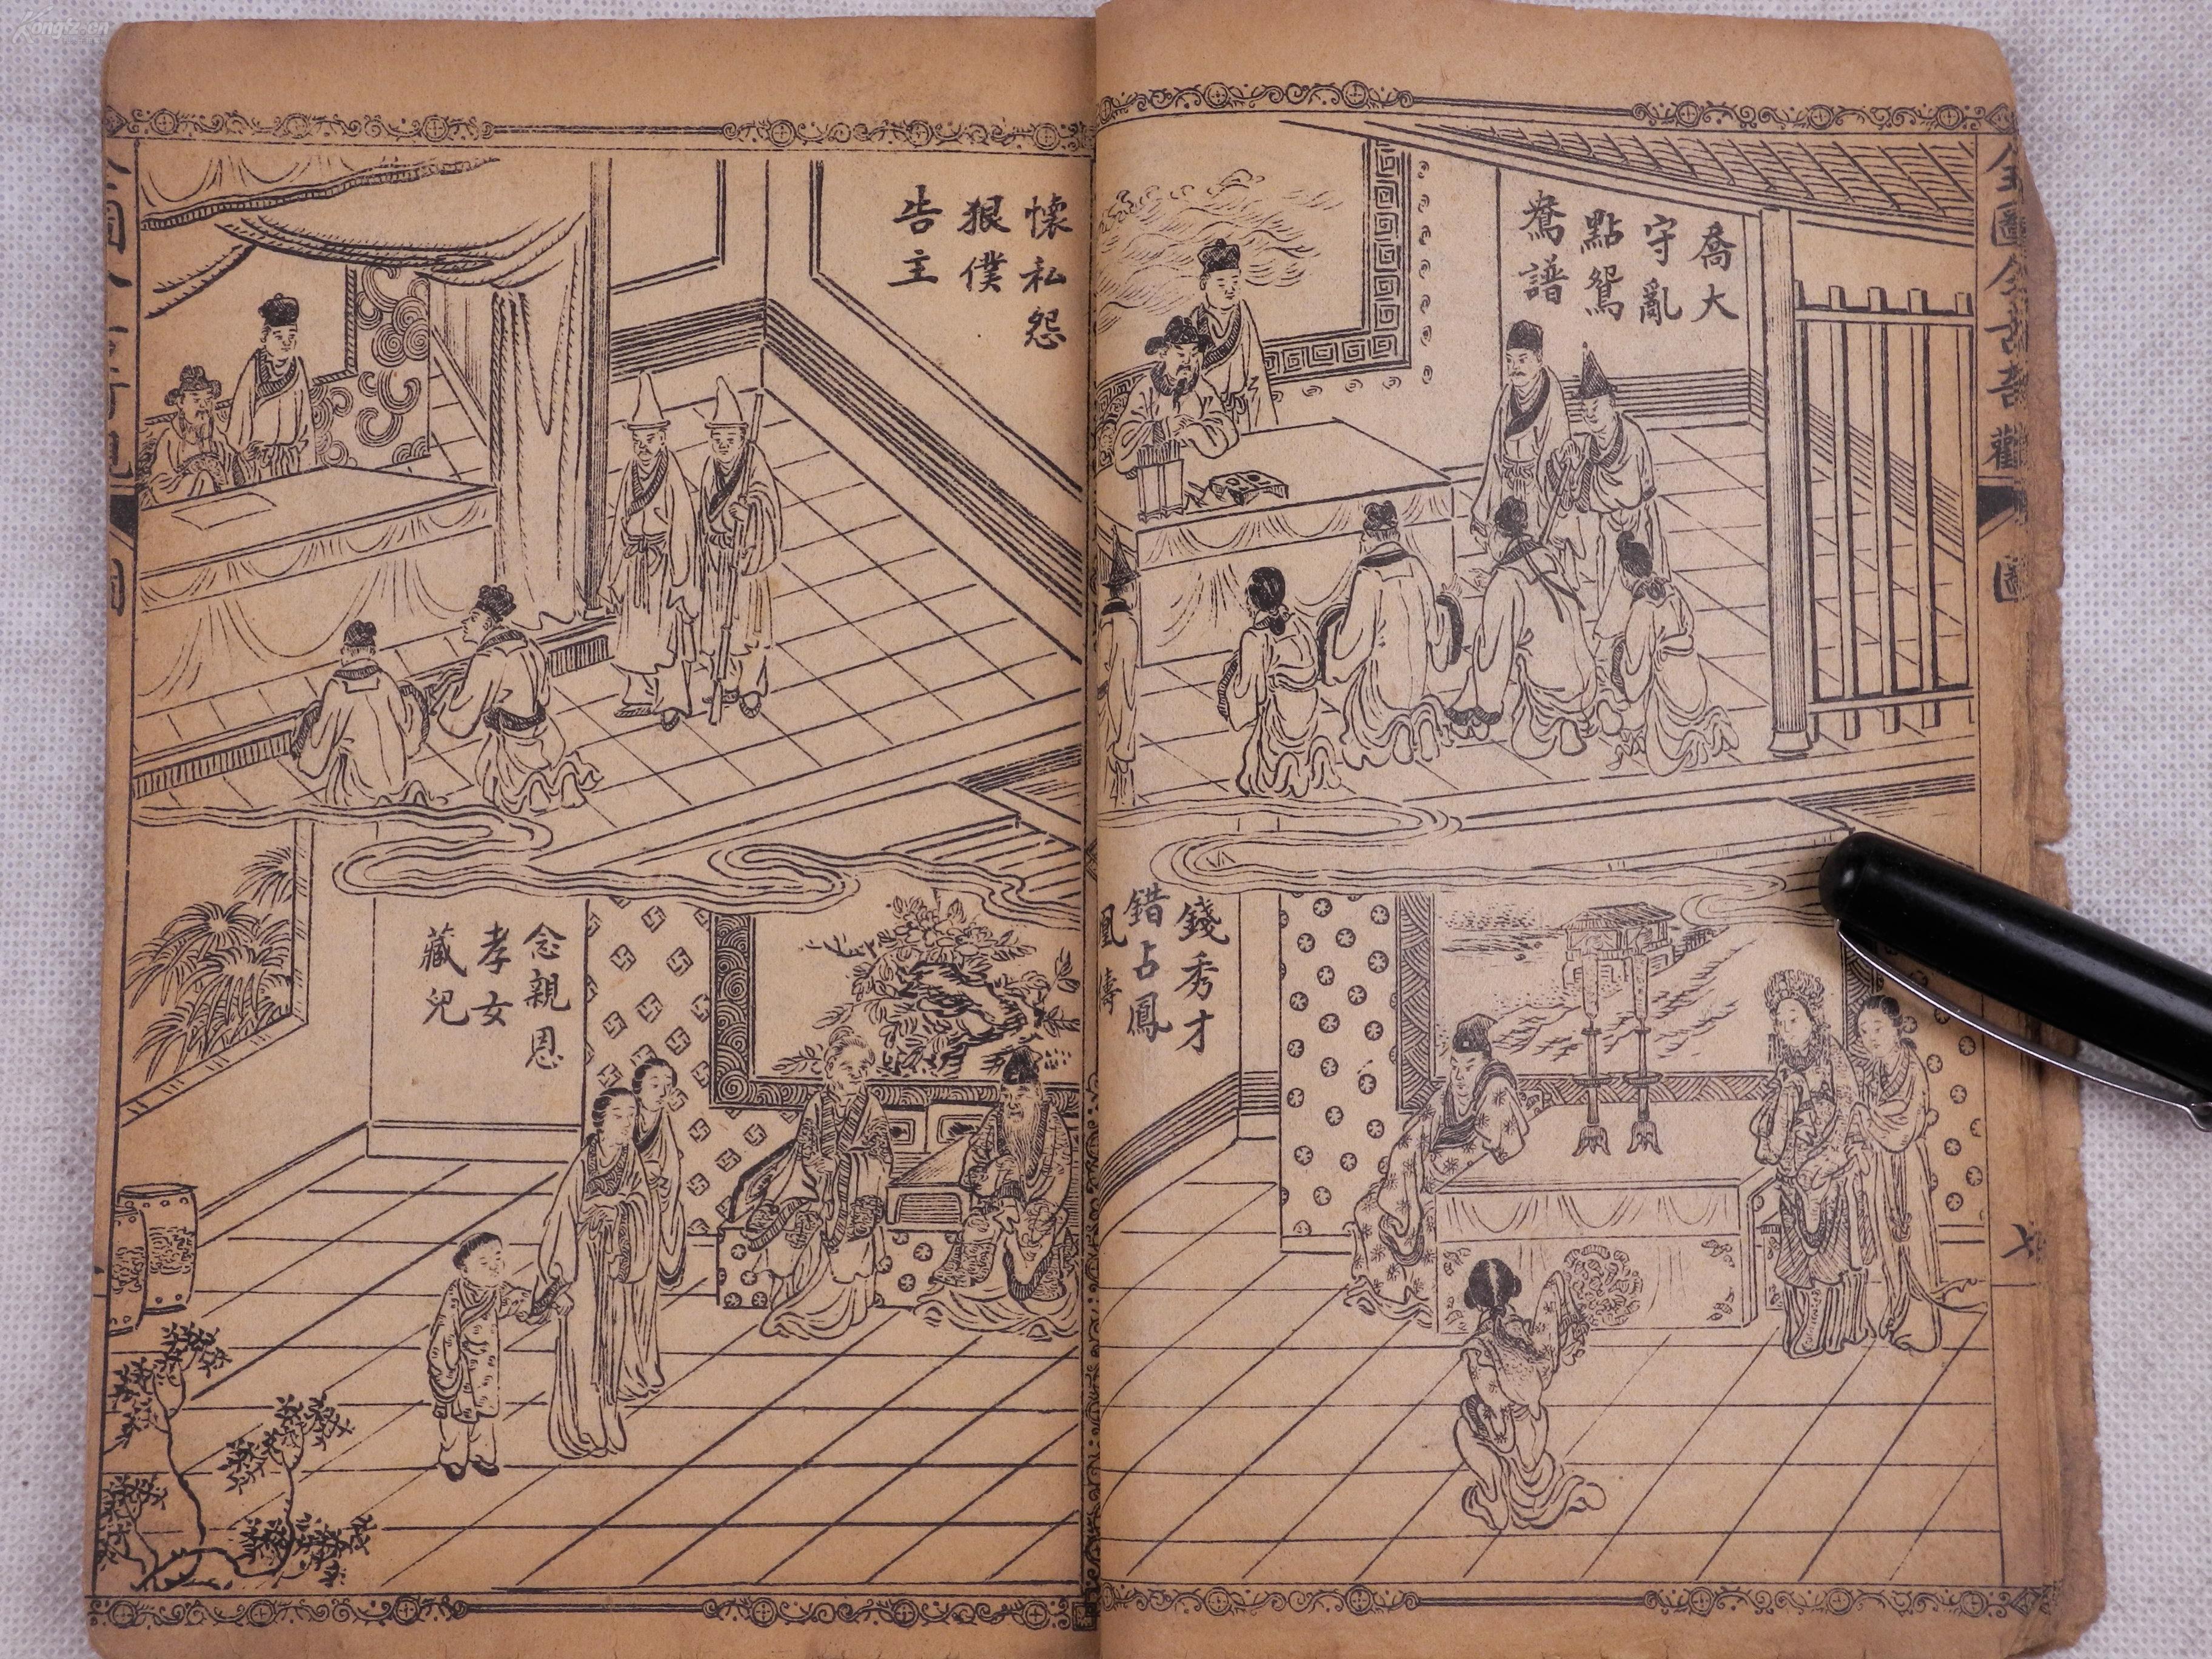 全圖今古奇觀
圖
七
喬大
守亂
點鴛
鴦譜
錢秀才
錯占鳳
凰儔
懷私怨
狠僕
告主
念親恩
孝女
藏兒
Kongfz.cn